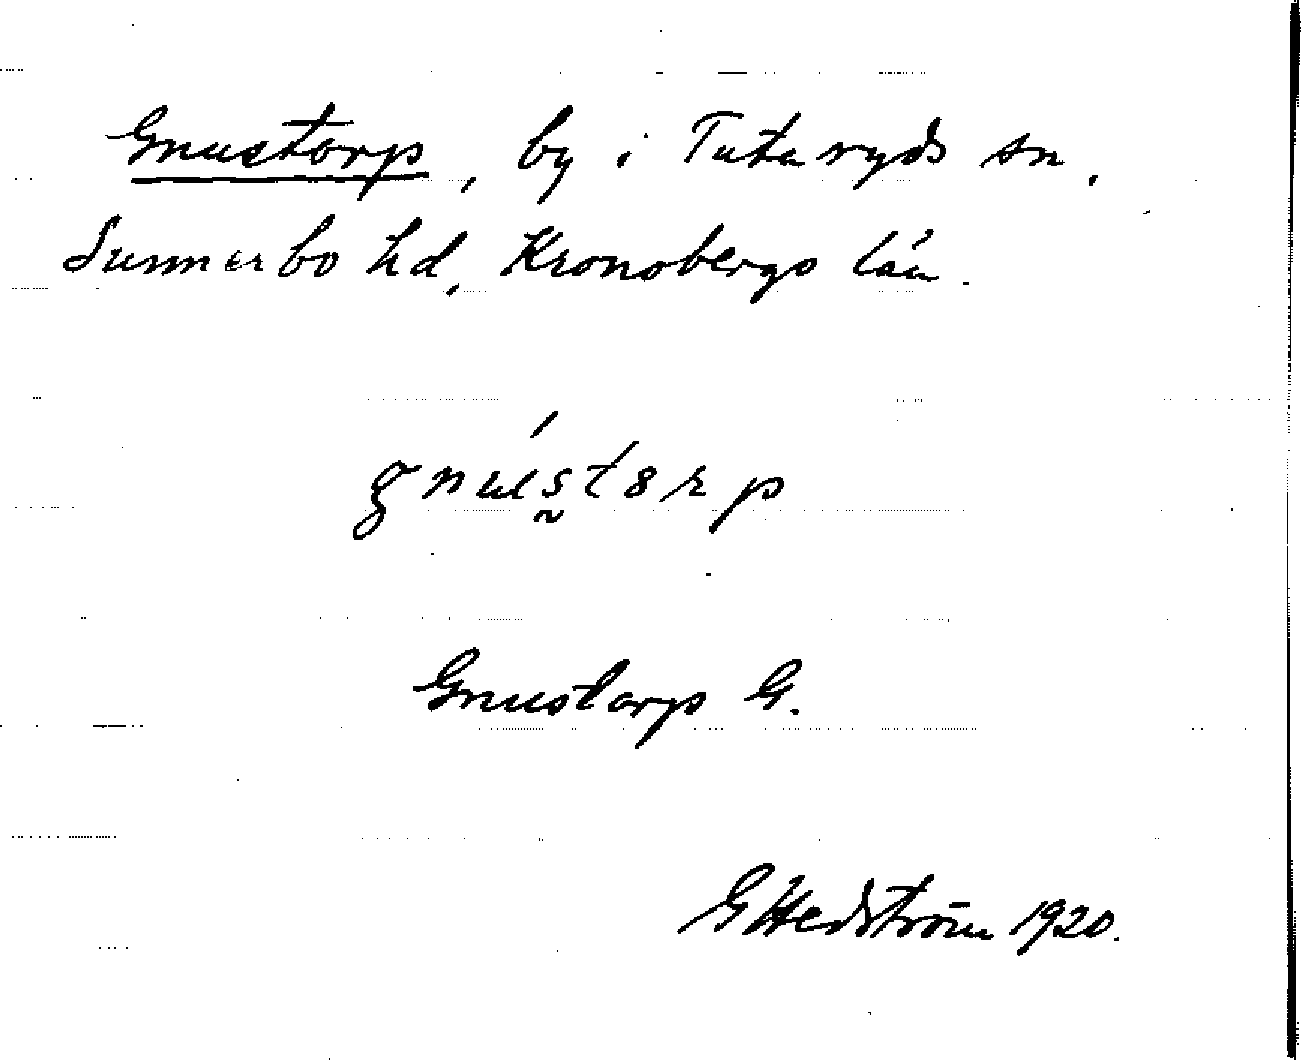 Gnustorp, by i Tutaryds sn,
Sunnerbo hd, Kronobergs län.
gnús̰torp
Gnustorp G.
G Hedström 1920.